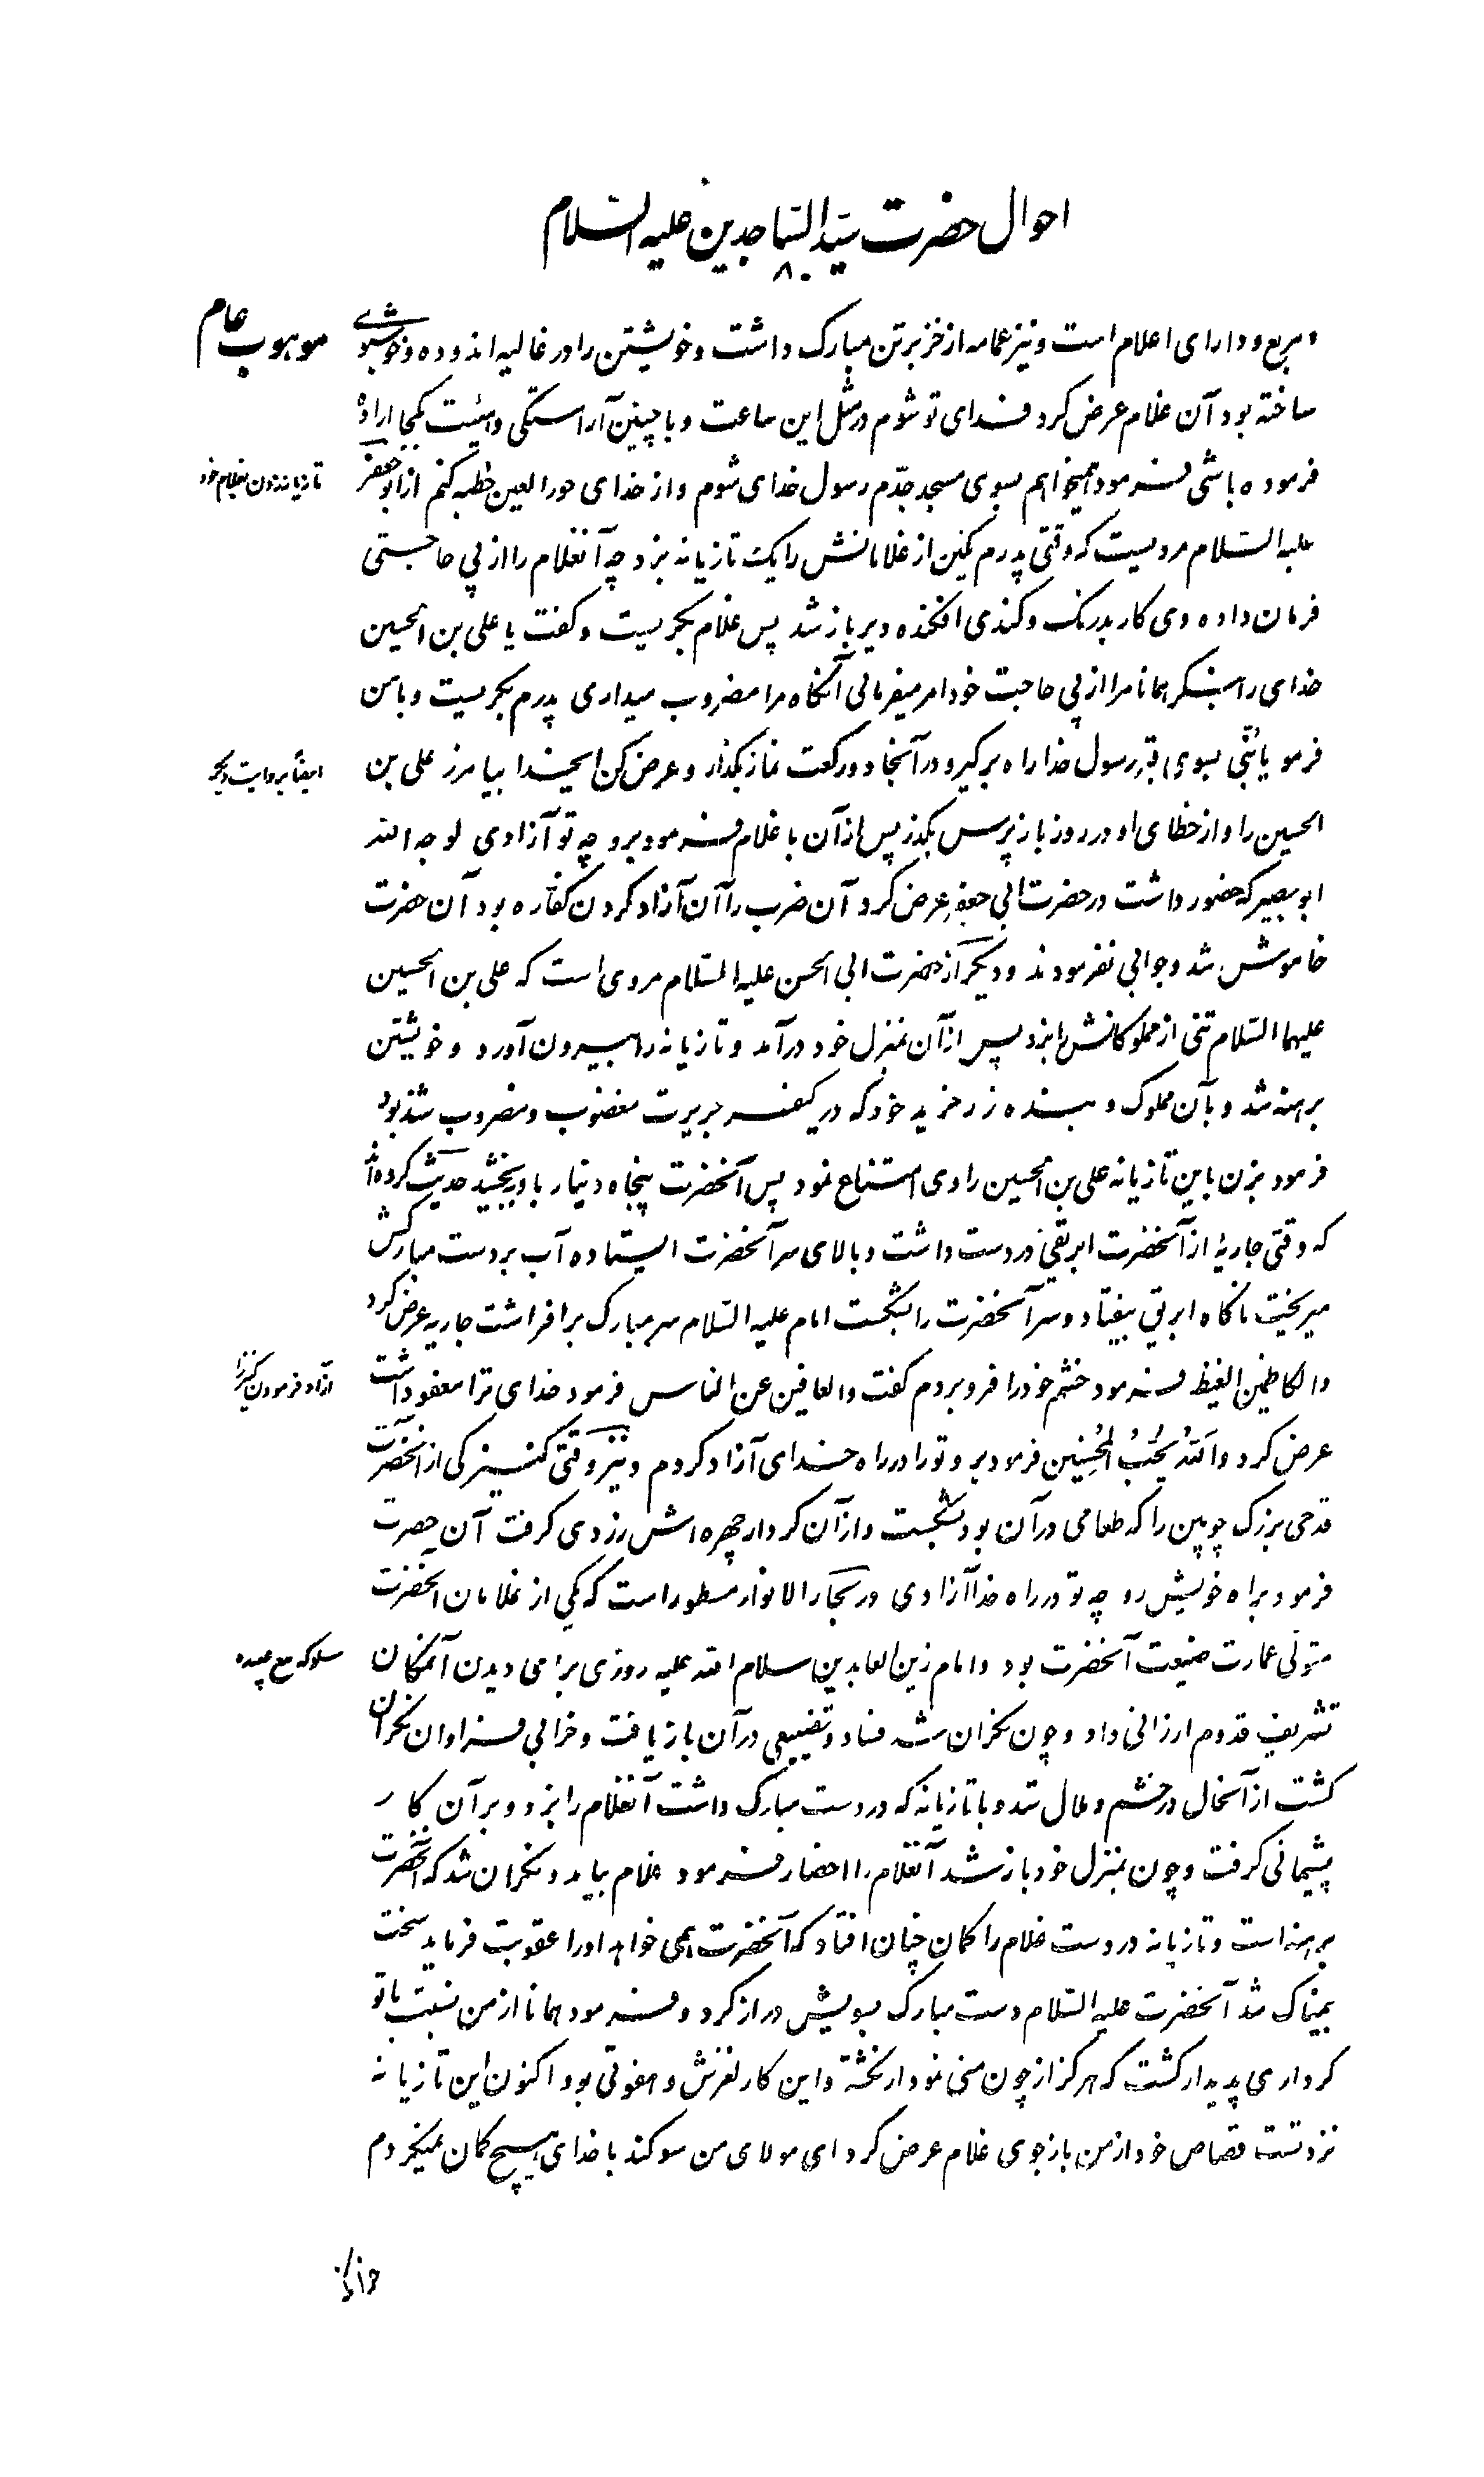 احوال حضرت سیّد السّاجدین علیه السّلام
۸۰
مربع و دارای اعلام است و نیز عمامه از خز بر تن مبارک داشت و خویشتن را در غالیه اندوده و خوشبوی
موهوب عام
ساخته بود آن غلام عرض کرد فدای تو شوم در مثل این ساعت و با چنین آراستگی و هیئت بکجا اراده
فرموده باشی فرمود میخواهم بسوی مسجد جدّم رسول خدای شوم و از خدای حورالعین خطبه کنم از ابو جعفر
تازیانه زدن بغلام خود
علیه السّلام مرویست که وقتی پدرم یکتن از غلامانش را یک تازیانه بزد چه آنغلام را از پی حاجتی
فرمان داده وی کار بدرنگ و کندی افکنده دیر باز شد پس غلام بگریست و گفت یا علی بن الحسین
خدای را بنگر همانا مرا از پی حاجت خود امر میفرمائی آنگاه مرا مضروب میداری پدرم بگریست و با من
فرمود یا بُنَّی بسوی قبر رسول خدا راه برگیر و در آنجا دو رکعت نماز بگذار و عرض کن ایخدا بیامرز علی بن
ایضاً بروایت دیگر
الحسین را و از خطای او در روز بازپرس بگذر پس از آن با غلام فرمود برو چه تو آزادی لوجه الله
ابو بصیر که حضور داشت در حضرت ابی جعفر عرض کرد آن ضرب را آن آزاد کردن کفّاره بود آن حضرت
خاموش شد و جوابی نفرمودند و دیگر از حضرت ابی الحسن علیه السّلام مروی است که علی بن الحسین
علیهما السّلام تنی از مملوکانش را بزد پس از آن بمنزل خود درآمد و تازیانه را بیرون آورد و خویشتن
برهنه شد و بآن مملوک و بنده زر خرید خود که در کیفر جریرت مغضوب و مضروب شده بود
فرمود بزن باین تازیانه علی بن الحسین را وی امتناع نمود پس آنحضرت پنجاه دینار باو ببخشید حدیث کرده‌اند
که وقتی جاریهٔ از آنحضرت ابریقی در دست داشت و بالای سر آنحضرت ایستاده آب بر دست مبارکش
میریخت ناگاه ابریق بیفتاد و سر آنحضرت را بشکست امام علیه السّلام سر مبارک برافراشت جاریه عرض کرد
والکاظمین الغیظ فرمود خشم خود را فرو بردم گفت والعافین عن الناس فرمود خدای ترا معفو داشت
آزاد فرمودن کنیز را
عرض کرد وَاللهُ یُحِبُّ المُحسِنین فرمود برو تو را در راه خدای آزاد کردم و نیز وقتی کنیزکی از آنحضرت
قدحی بزرگ چوبین را که طعامی در آن بود بشکست و از آن کردار چهره اش زردی گرفت آن حضرت
فرمود براه خویش رو چه تو در راه خدا آزادی در بحار الانوار مسطور است که یکی از غلامان آنحضرت
متولّی عمارت ضیعت آنحضرت بود و امام زین العابدین سلام الله علیه روزی برای دیدن آنمکان
سلوکه مع عبیده
تشریف قدوم ارزانی داد و چون نگران شد فساد و تضییعی در آن باز یافت و خرابی فراوان نگران
گشت از آنحال در خشم و ملال شد و با تازیانه که در دست مبارک داشت آنغلام را بزد و بر آن کار
پشیمانی گرفت و چون بمنزل خود باز شد آنغلام را احضار فرمود غلام بیامد و نگران شد که آنحضرت
برهنه است و تازیانه در دست غلام را گمان چنان افتاد که آنحضرت همی خواهد او را عقوبت فرماید سخت
بیمناک شد آنحضرت علیه السّلام دست مبارک بسویش دراز کرد و فرمود همانا از من نسبت با تو
کرداری پدیدار گشت که هرگز از چون منی نمودار نگشته و این کار لغزش و هفوتی بود اکنون این تازیانه
نزد تست قصاص خود از من باز جوی غلام عرض کرد ای مولای من سوگند با خدای هیچ گمان نمیکردم
جز آنکه